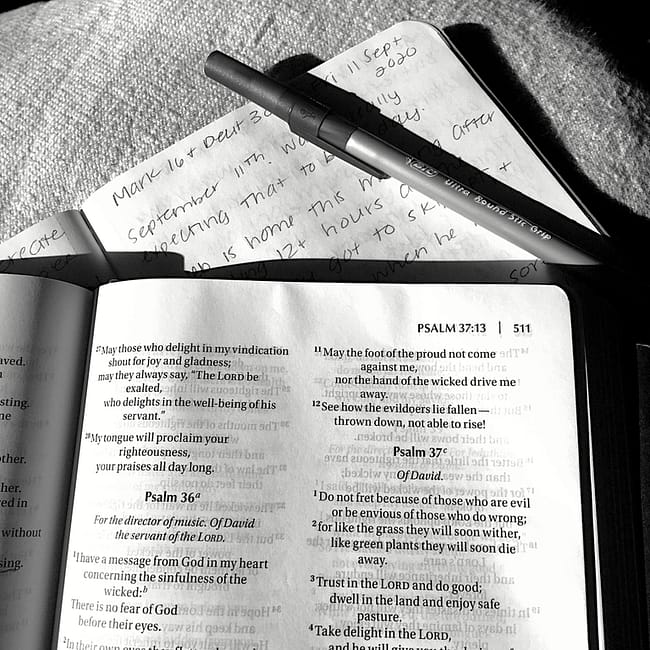 Fri 11 Sept
2020
Mark 16 + Deut 30
September 11th.
expecting that to be day.
is home this after
12+ hours
got to
when he
Ultra Round Stic Grip
PSALM 37:13 | 511
27May those who delight in my vindication
shout for joy and gladness;
may they always say, “The LORD be
exalted,
who delights in the well-being of his
servant.”
28My tongue will proclaim your
righteousness,
your praises all day long.
Psalm 36a
For the director of music. Of David
the servant of the LORD.
1I have a message from God in my heart
concerning the sinfulness of the
wicked:b
There is no fear of God
before their eyes.
2In their own eyes they
11May the foot of the proud not come
against me,
nor the hand of the wicked drive me
away.
12See how the evildoers lie fallen—
thrown down, not able to rise!
Psalm 37c
Of David.
1Do not fret because of those who are evil
or be envious of those who do wrong;
2for like the grass they will soon wither,
like green plants they will soon die
away.
3Trust in the LORD and do good;
dwell in the land and enjoy safe
pasture.
4Take delight in the LORD,
and he will give you